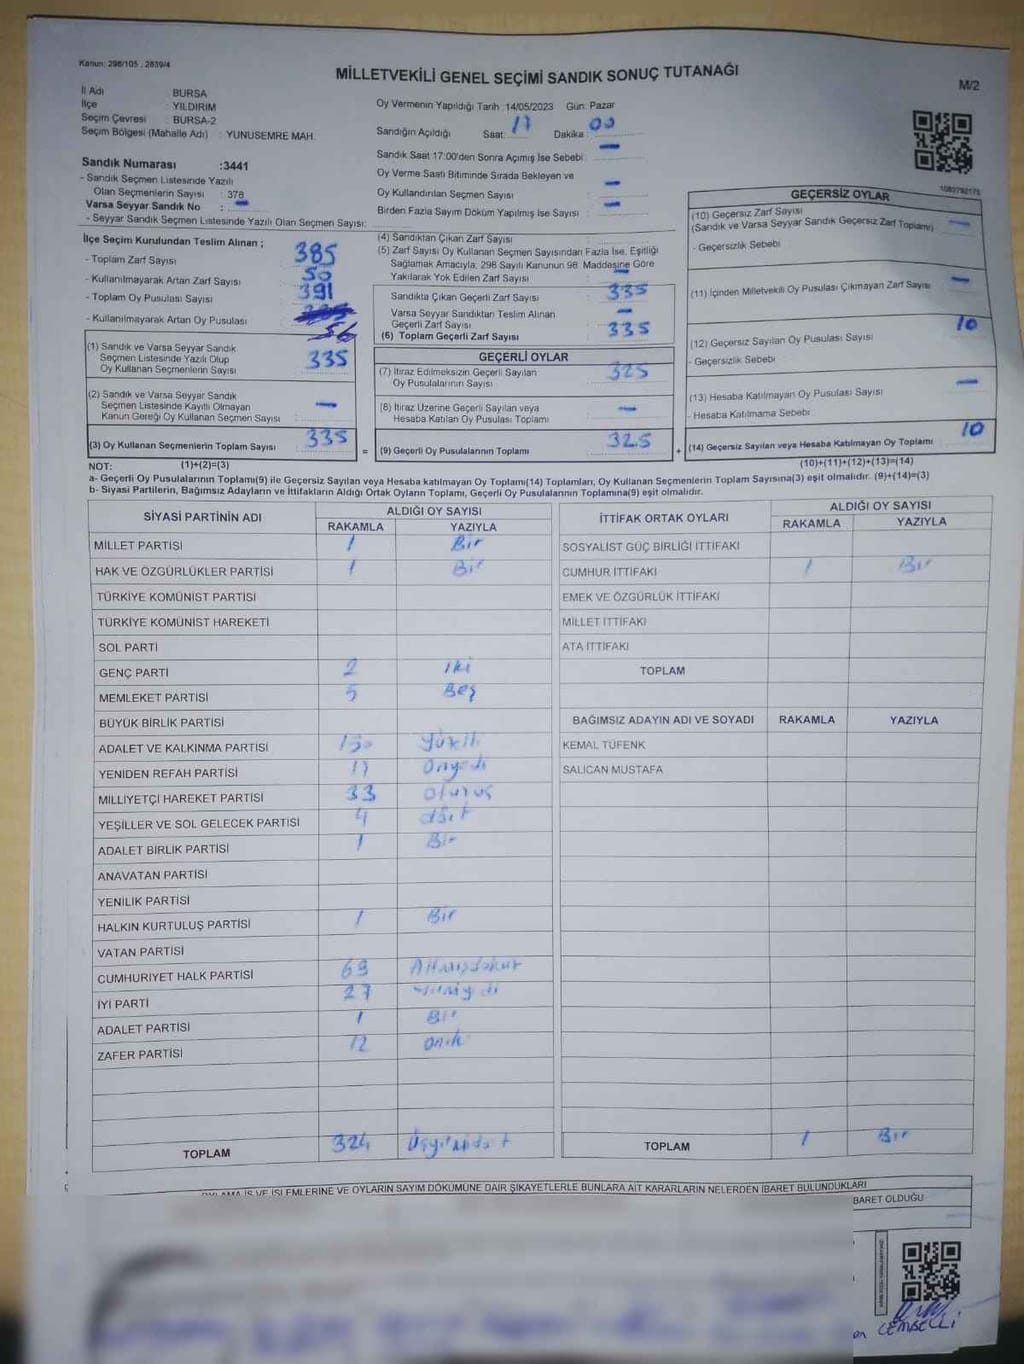 Kanun: 298/105 , 2839/4
MİLLETVEKİLİ GENEL SEÇİMİ SANDIK SONUÇ TUTANAĞI
M/2
İl Adı BURSA
İlçe YILDIRIM
Seçim Çevresi : BURSA-2
Seçim Bölgesi (Mahalle Adı) : YUNUSEMRE MAH.
Sandık Numarası :3441
- Sandık Seçmen Listesinde Yazılı
Olan Seçmenlerin Sayısı : 378
Varsa Seyyar Sandık No : -
- Seyyar Sandık Seçmen Listesinde Yazılı Olan Seçmen Sayısı:
Oy Vermenin Yapıldığı Tarih :14/05/2023 Gün: Pazar
Sandığın Açıldığı Saat: 17 Dakika : 00
Sandık Saat 17:00'den Sonra Açımış İse Sebebi : -
Oy Verme Saati Bitiminde Sırada Bekleyen ve
Oy Kullandırılan Seçmen Sayısı : -
Birden Fazla Sayım Döküm Yapılmış İse Sayısı : -
1083792175
İlçe Seçim Kurulundan Teslim Alınan ;
- Toplam Zarf Sayısı : 385
- Kullanılmayarak Artan Zarf Sayısı : 50
- Toplam Oy Pusulası Sayısı : 391
- Kullanılmayarak Artan Oy Pusulası : 56
(1) Sandık ve Varsa Seyyar Sandık
Seçmen Listesinde Yazılı Olup
Oy Kullanan Seçmenlerin Sayısı : 335
(2) Sandık ve Varsa Seyyar Sandık
Seçmen Listesinde Kayıtlı Olmayan
Kanun Gereği Oy Kullanan Seçmen Sayısı : -
(3) Oy Kullanan Seçmenlerin Toplam Sayısı : 335
(4) Sandıktan Çıkan Zarf Sayısı
(5) Zarf Sayısı Oy Kullanan Seçmen Sayısından Fazla İse, Eşitliği
Sağlamak Amacıyla, 298 Sayılı Kanunun 98. Maddesine Göre
Yakılarak Yok Edilen Zarf Sayısı : -
Sandıkta Çıkan Geçerli Zarf Sayısı : 335
Varsa Seyyar Sandıktan Teslim Alınan
Geçerli Zarf Sayısı : -
(6) Toplam Geçerli Zarf Sayısı : 335
GEÇERLİ OYLAR
(7) İtiraz Edilmeksizin Geçerli Sayılan
Oy Pusulalarının Sayısı : 325
(8) İtiraz Üzerine Geçerli Sayılan veya
Hesaba Katılan Oy Pusulası Toplamı : -
= (9) Geçerli Oy Pusulalarının Toplamı : 325
GEÇERSİZ OYLAR
(10) Geçersiz Zarf Sayısı
(Sandık ve Varsa Seyyar Sandık Geçersiz Zarf Toplamı) -
- Geçersizlik Sebebi
(11) İçinden Milletvekili Oy Pusulası Çıkmayan Zarf Sayısı : -
(12) Geçersiz Sayılan Oy Pusulası Sayısı : 10
- Geçersizlik Sebebi
(13) Hesaba Katılmayan Oy Pusulası Sayısı : -
- Hesaba Katılmama Sebebi
+ (14) Geçersiz Sayılan veya Hesaba Katılmayan Oy Toplamı : 10
NOT: (1)+(2)=(3)
(10)+(11)+(12)+(13)=(14)
a- Geçerli Oy Pusulalarının Toplamı(9) ile Geçersiz Sayılan veya Hesaba katılmayan Oy Toplamı(14) Toplamları, Oy Kullanan Seçmenlerin Toplam Sayısına(3) eşit olmalıdır. (9)+(14)=(3)
b- Siyasi Partilerin, Bağımsız Adayların ve İttifakların Aldığı Ortak Oyların Toplamı, Geçerli Oy Pusulalarının Toplamına(9) eşit olmalıdır.
SİYASİ PARTİNİN ADI ALDIĞI OY SAYISI
RAKAMLA YAZIYLA
MİLLET PARTİSİ 1 Bir
HAK VE ÖZGÜRLÜKLER PARTİSİ 1 Bir
TÜRKİYE KOMÜNİST PARTİSİ
TÜRKİYE KOMÜNİST HAREKETİ
SOL PARTİ
GENÇ PARTİ 2 iki
MEMLEKET PARTİSİ 5 Beş
BÜYÜK BİRLİK PARTİSİ
ADALET VE KALKINMA PARTİSİ 150
YENİDEN REFAH PARTİSİ 17 Onyedi
MİLLİYETÇİ HAREKET PARTİSİ 33 otuzüç
YEŞİLLER VE SOL GELECEK PARTİSİ 4 dört
ADALET BİRLİK PARTİSİ 1 Bir
ANAVATAN PARTİSİ
YENİLİK PARTİSİ
HALKIN KURTULUŞ PARTİSİ 1 Bir
VATAN PARTİSİ
CUMHURİYET HALK PARTİSİ 69 Altmışdokuz
İYİ PARTİ 27
ADALET PARTİSİ 1 Bir
ZAFER PARTİSİ 12 oniki
TOPLAM 324
İTTİFAK ORTAK OYLARI ALDIĞI OY SAYISI
RAKAMLA YAZIYLA
SOSYALİST GÜÇ BİRLİĞİ İTTİFAKI
CUMHUR İTTİFAKI 1 Bir
EMEK VE ÖZGÜRLÜK İTTİFAKI
MİLLET İTTİFAKI
ATA İTTİFAKI
TOPLAM
BAĞIMSIZ ADAYIN ADI VE SOYADI RAKAMLA YAZIYLA
KEMAL TÜFENK
SALİCAN MUSTAFA
TOPLAM 1 Bir
OYLAMA İŞ VE İŞLEMLERİNE VE OYLARIN SAYIM DÖKÜMÜNE DAİR ŞİKAYETLERLE BUNLARA AİT KARARLARIN NELERDEN İBARET BULUNDUKLARI
BARET OLDUĞU